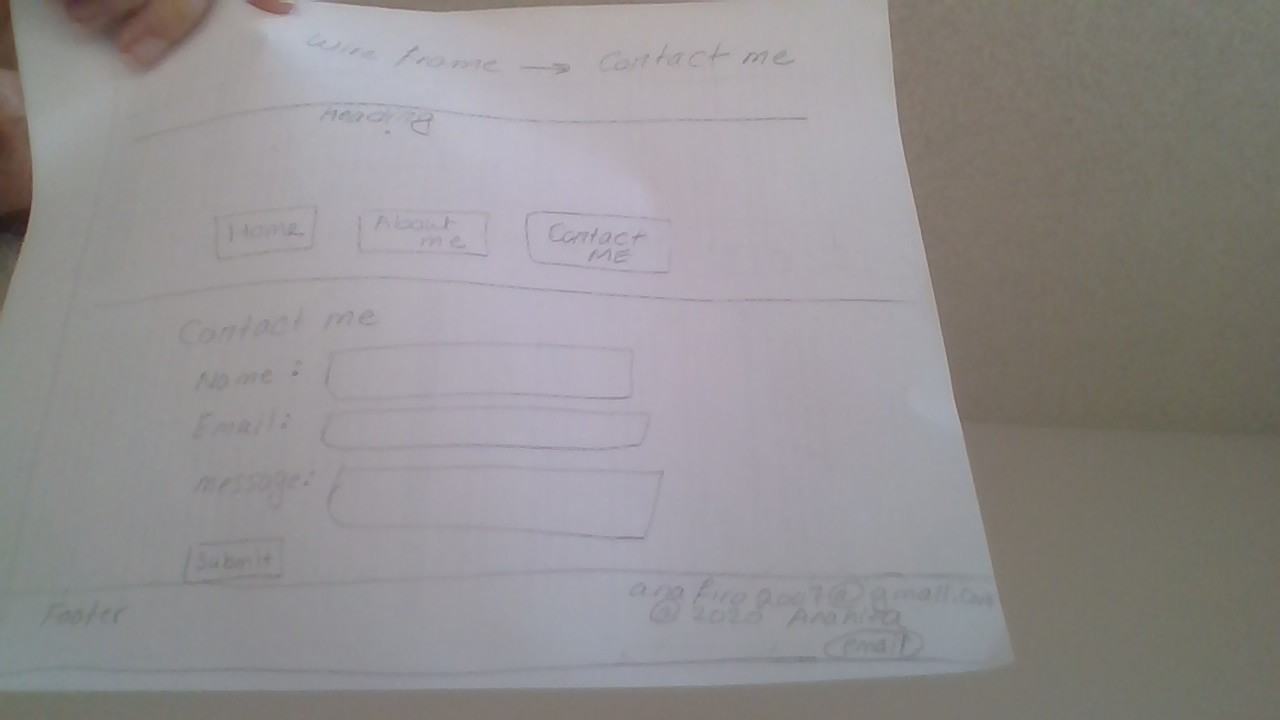 Wire frame → Contact me
Heading
Home
About
me
Contact
ME
Contact me
Name :
Email:
message:
Submit
Footer
@gmail.com
© 2020 Anahita
email